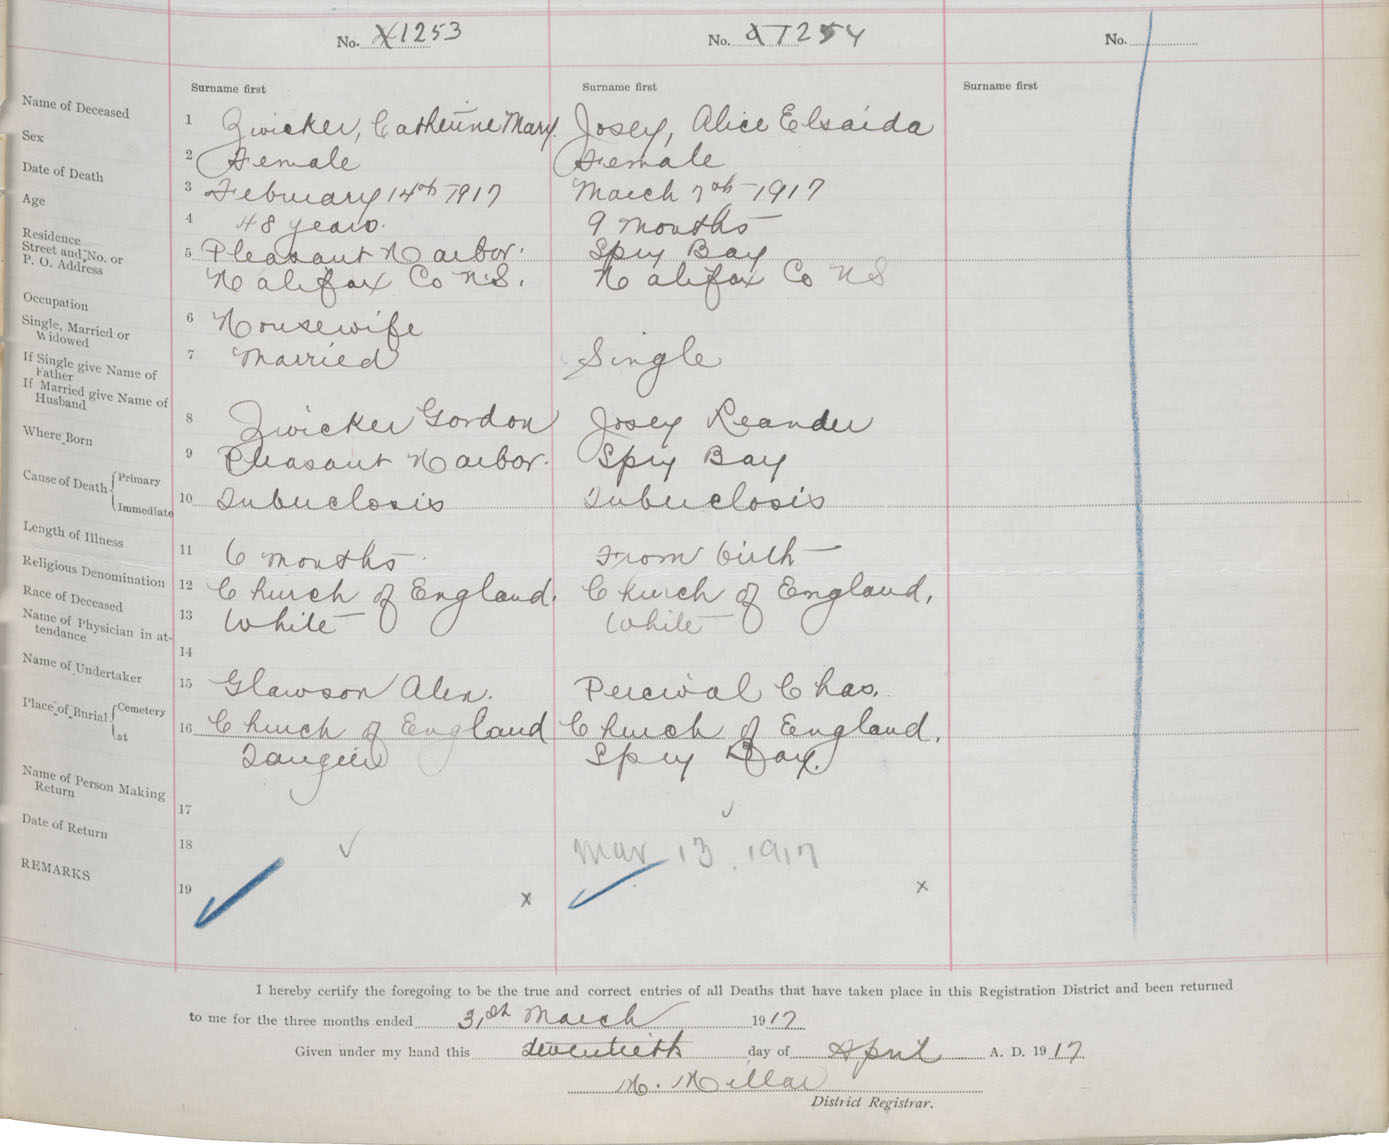 No. X1253
No. X1254
No.
Surname first
Surname first
Surname first
Name of Deceased 1 Zwicker, Catherine Mary. Josey, Alice Elsaida
Sex 2 Female Female
Date of Death 3 February 14th 1917 March 7th 1917
Age 4 48 years. 9 months
Residence
Street and No. or 5 Pleasant Harbor. Spry Bay
P. O. Address Halifax Co N.S. Halifax Co NS
Occupation 6 Housewife
Single, Married or
Widowed 7 Married Single
If Single give Name of
Father
If Married give Name of
Husband 8 Zwicker Gordon Josey Leander
Where Born 9 Pleasant Harbor. Spry Bay
Cause of Death Primary
Immediate 10 Tubuclosis Tubuclosis
Length of Illness 11 6 months From birth
Religious Denomination 12 Church of England. Church of England.
Race of Deceased 13 White White
Name of Physician in at-
tendance 14
Name of Undertaker 15 Glawson Alex. Percival Chas.
Place of Burial Cemetery 16 Church of England Church of England.
at Tangier Spry Bay.
Name of Person Making
Return 17
Date of Return 18 Mar 13. 1917
REMARKS 19 x x
I hereby certify the foregoing to be the true and correct entries of all Deaths that have taken place in this Registration District and been returned
to me for the three months ended 31st March 1917
Given under my hand this twentieth day of April A. D. 1917
H. Millar
District Registrar.